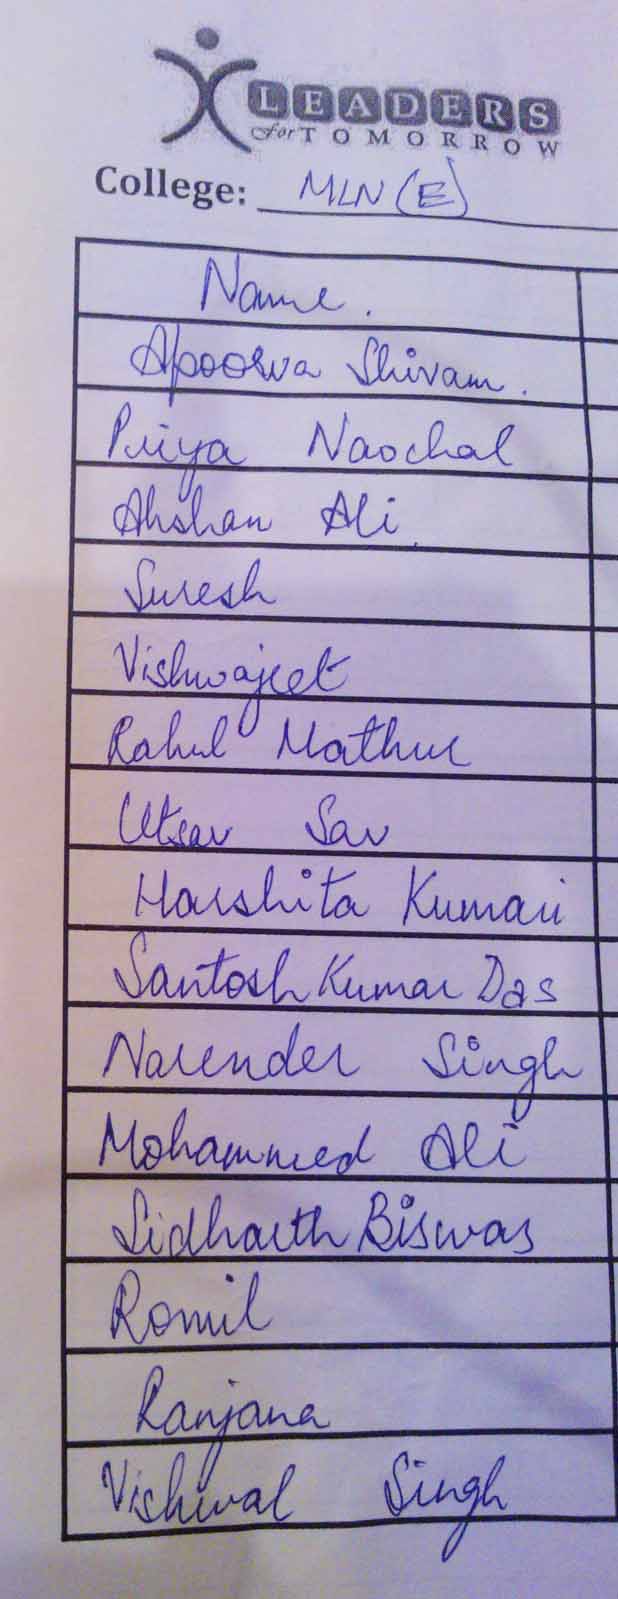 LEADERS
for TOMORROW
College: MLN (E)
Name.
Apoorva Shivam.
Priya Naochal
Ahshan Ali.
Suresh
Vishwajeet
Rahul Mathur
Utsav Sav
Harshita Kumari
Santosh Kumar Das
Narender Singh
Mohammed Ali
Sidharth Biswas
Romil
Ranjana
Vishwal Singh